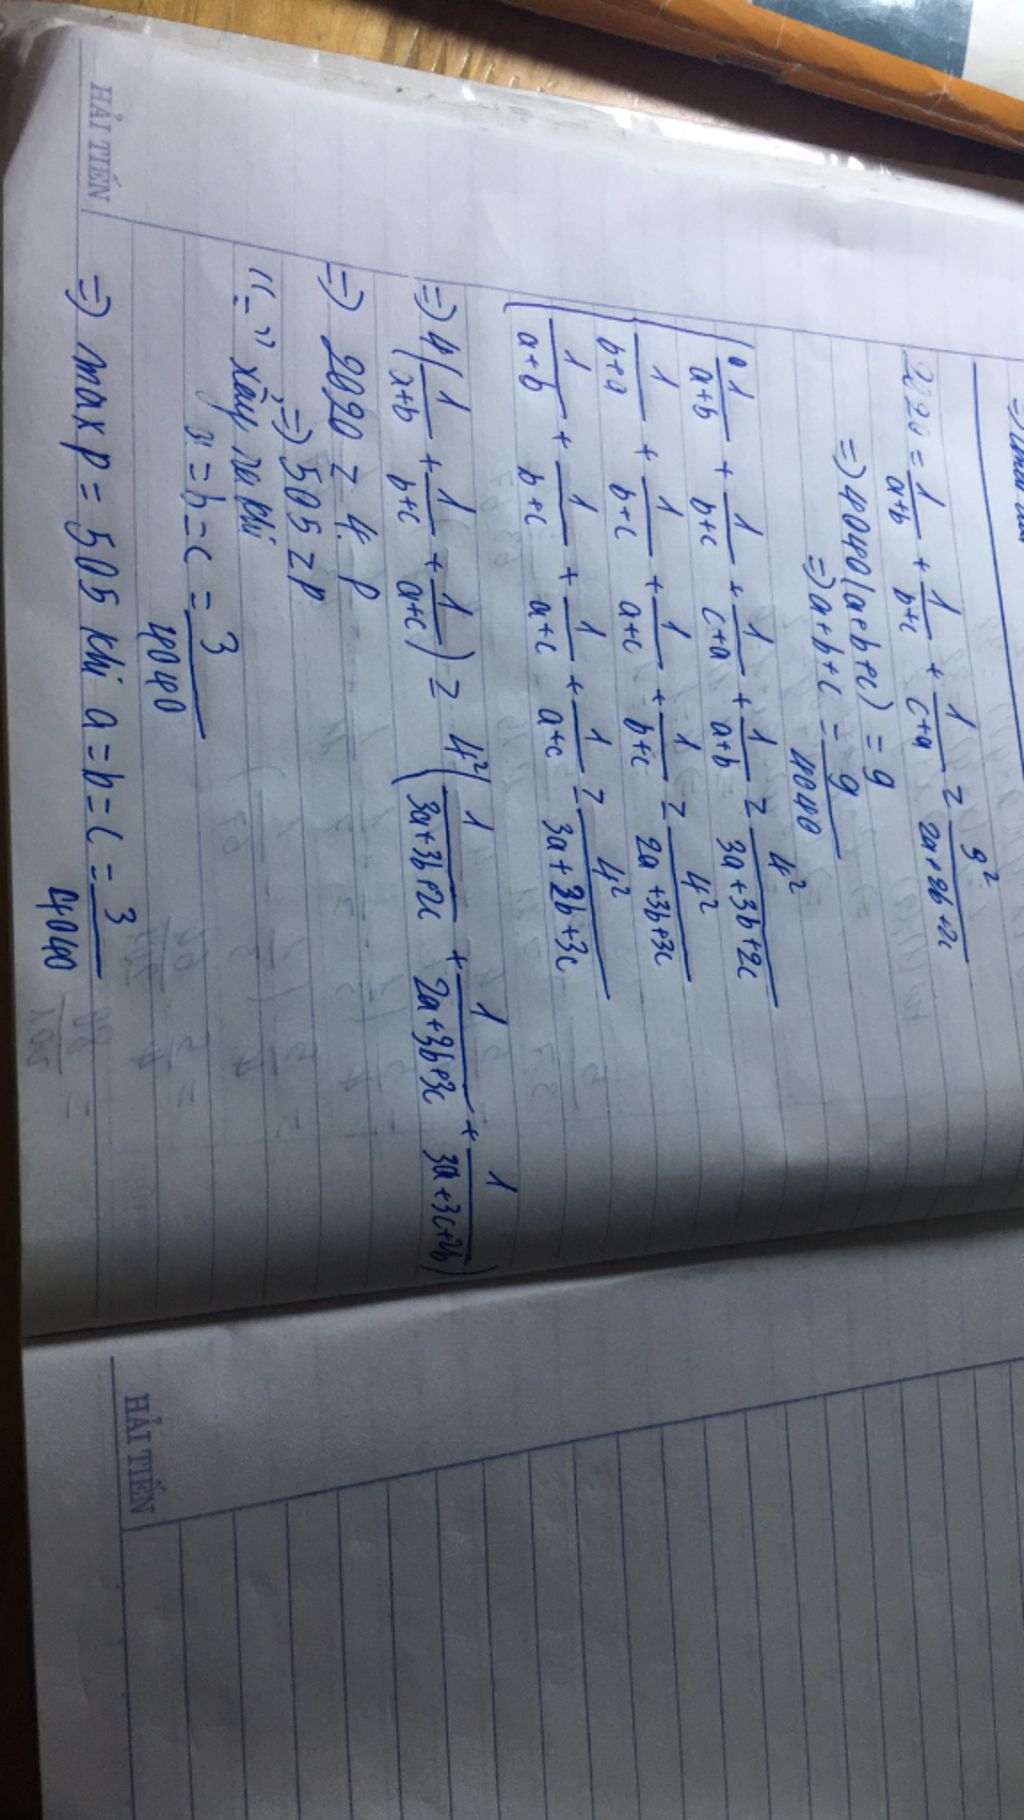 2020 = 1/(a+b) + 1/(b+c) + 1/(c+a) ≥ 9²/(2a+2b+2c)
=> 4040(a+b+c) = 9
=> a+b+c = 9/4040
1/(a+b) + 1/(b+c) + 1/(c+a) + 1/(a+b) ≥ 4²/(3a+3b+2c)
1/(b+a) + 1/(b+c) + 1/(a+c) + 1/(b+c) ≥ 4²/(2a+3b+3c)
1/(a+b) + 1/(b+c) + 1/(a+c) + 1/(a+c) ≥ 4²/(3a+2b+3c)
=> 4(1/(a+b) + 1/(b+c) + 1/(a+c)) ≥ 4²(1/(3a+3b+2c) + 1/(2a+3b+3c) + 1/(3a+3c+2b))
=> 2020 ≥ 4. P
=> 505 ≥ P
"=" xảy ra khi
a = b = c = 3/4040
=> max P = 505 khi a = b = c = 3/4040
HẢI TIẾN
HẢI TIẾN